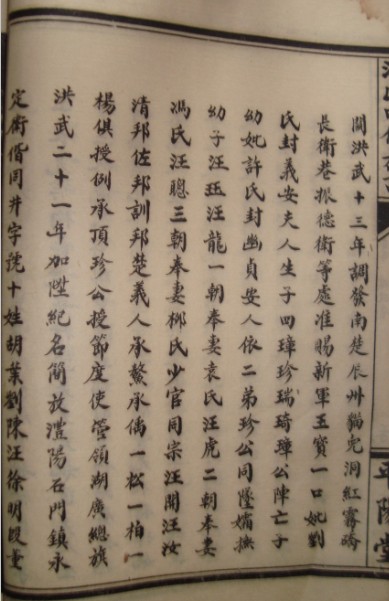 關洪武十三年調發南楚辰州貓兒洞紅霧磅
長衝巷振德衝等處准賜新軍五寶一口妣劉
氏封義安夫人生子四璋珍瑞琦璋公陣亡子
幼妣許氏封幽貞安人依二弟珍公同墜孀撫
幼子汪珏汪龍一朝奉妻袁氏汪虎二朝奉妻
馮氏汪聰三朝奉妻柳氏少官同宗汪開汪汝
清邦佐邦訓邦楚義人承鰲承偊一松一柏一
楊俱授例承頂珍公授節度使管領湖廣總旗
洪武二十一年加陞紀名簡放澧陽石門鎮永
定衛偕同井字號十姓胡葉劉陳汪徐明段董